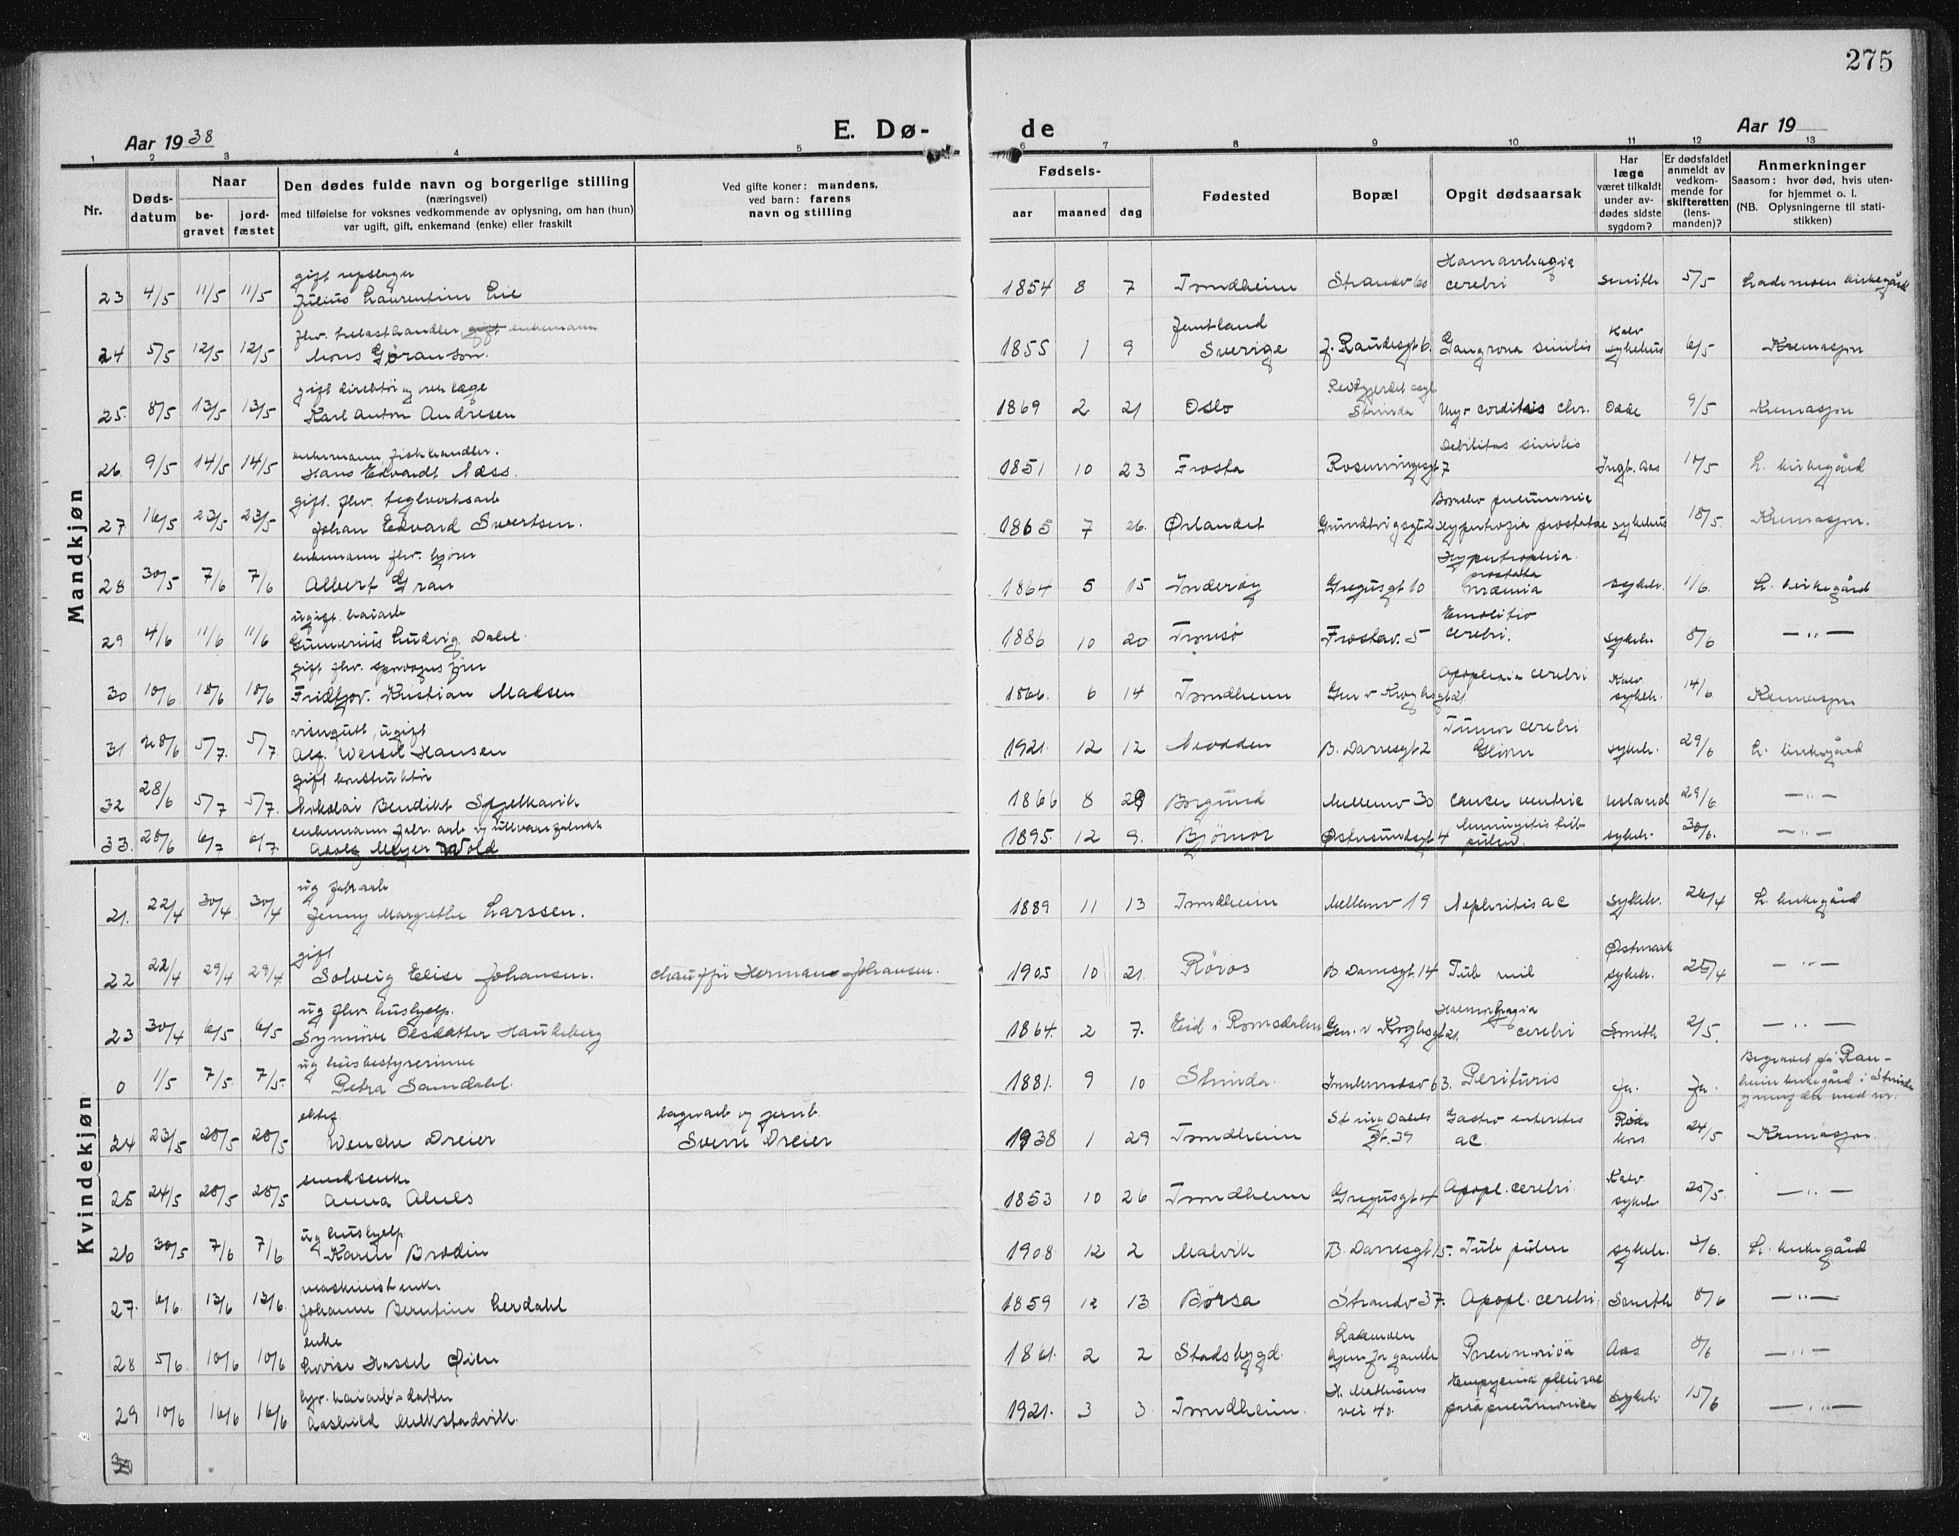 275
Aar 1938
E. Dø-
de
Aar 19
1 2 3 4 5 6 7 8 9 10 11 12 13
Nr.
Døds-
datum
Naar
be-
gravet
jord-
fæstet
Den dødes fulde navn og borgerlige stilling
(næringsvei)
med tilføielse for voksnes vedkommende av oplysning, om han (hun)
var ugift, gift, enkemand (enke) eller fraskilt
Ved gifte koner: mandens,
ved barn: farens
navn og stilling
Fødsels-
aar
maaned
dag
Fødested
Bopæl
Opgit dødsaarsak
Har
læge
været tilkaldt
under av-
dødes sidste
sygdom?
Er dødsfaldet
anmeldt av
vedkom-
mende for
skifteretten
(lens-
manden)?
Anmerkninger
Saasom: hvor død, hvis uten-
for hjemmet o. l.
(NB. Oplysningerne til stati-
stikken)
Mandkjøn
gift repslager Hæmorrhagia
23 4/5 11/5 11/5 Julius Laurentius Lie 1854 8 7 Trondheim Strandv 60 cerebri Smith 5/5 Lademoen kirkegård
fhv. trelasthandler, gift enkemann Jemtland Kalv
24 5/5 12/5 12/5 Mons Gøranson. 1855 1 9 Sverige J. Raudesgt 6. Gangrena sinilis sykehus 6/5 Kremasjon
gift direktør og overlæge
25. 8/5 13/5 13/5 Karl Anton Andresen 1869 2 21 Oslo Strinda Myocarditis chr. Odde 9/5 Kremasjon
enkemann fiskhandler. Debilitas sinilis
26. 9/5 14/5 14/5 Hans Edvardt Næss. 1851 10 23 Frosta Rosenvingesgt 7 Ingb. Aas 10/5 L. kirkegård
gift. fhv. teglverksarb pneumonia
27 16/5 23/5 23/5 Johan Edvard Sivertsen. 1865 7 26. Ørlandet Grundtvigsgt 2 Hypertrofia prostatae sykehus 18/5. Kremasjon.
enkemann fhv. kjører Hypertrophia
prostata
28 30/5 7/6 7/6 Albert Gran 1864 5 15 Inderøy Gregusgt 10 Uræmia sykeh. 1/6. L. kirkegård
ugift havarb Emolitio
29 4/6 11/6 11/6 Gunnerius Ludvig Dahl. 1886 10 20 Tromsø Frostav. 5 cerebri. sykeh. 8/6 — " —
gift fhv. sporvognsfører Apoplexia cerebri Kalv
30 10/6 18/6 18/6 Fridtjov. Kristian Madsen 1866. 6 14 Trondheim Gen v Kroghsgt 21 sykeh. 14/6 Kremasjon
visergutt, ugift Tumor cerebri
31 28/6 5/7. 5/7 Alf. Wessel Hansen 1921. 12 12 Notodden B. Darresgt 2 Gliom sykeh. 29/6 L. kirkegård
gift konstruktør
32 28/6 5/7 5/7. Nikolai Bendikt Spjelkavik 1866 8 28 Borgund Mellemv 30 Cancer ventric 29/6 — " —
enkemann fabr. arb
33. 28/6 6/7 6/7. Meyer Wold 1895. 12 9. Bjørnør Østersundsgt 4 Meningitis tub sykeh. 30/6. — " —
Kvindekjøn
ug fabrarb
21. 22/4 30/4 30/4 Jenny Margrethe Larssen. 1889 11 13 Trondheim Mellemv 19 Nephritis ac sykeh. 26/4 L. kirkegård
gift Østmark
22 22/4 29/4 29/4 Solveig Elise Johansen. chauffør Herman Johansen. 1905 10 21. Røros B. Darresgt. 14 Tub mil sykeh. 25/4 — " —
ug fhv. hushjelp. Hæmorrhagia
23 30/4 6/5 6/5 Synnøve Olsdatter Haukeberg 1864. 2 7. Eid i Romsdalen Gen. v Kroghsgt 21. cerebri Smith 2/5. — " —
ug husbestyrerinne Begravet på Ran-
0 1/5 7/5. 7/5. Petra Samdahl. 1881. 9 10 Strinda. Innherredsv 63. ja. ja. heim kirkegård i Strinda
ektef bagerarb og jernb Gastro enteritis Røde
24 23/5 28/5 28/5 Wenche Dreier Sverre Dreier 1938 1 29 Trondheim gt. 39 ac. kors 24/5 Kremasjon.
enke Kalv
25 24/5 28/5 28/5 Anna Alnes 1853 10 26 Trondheim Gregusgt 4 Apopl. cerebri sykeh. 25/5. — " —
ug hushjelp
26 30/5 7/6 7/6 Karen Brodin 1908. 12 2 Malvik B. Darresgt 15. Tub pulm sykeh. 3/6. L. kirkegård
maskinist enke
27. 6/6. 13/6 13/6. Johanne Berntine Lerdahl 1859 12 13 Børsa Strandv 37. Apopl. cerebri, Smith 8/6 — " —
enke Lademoen
28 5/6. 10/6 10/6 Lovise Hassel Øien 1861. 2 2 Stadsbygd. hjem for gamle Pneumonia Aas 8/6 — " —
havarb-datter Empyema pleurae
29 10/6 16/6 16/6 Aashild Melkstadvik. 1921. 3 3. Trondheim. vei 40. parapneumonica sykeh. 15/6 — " —